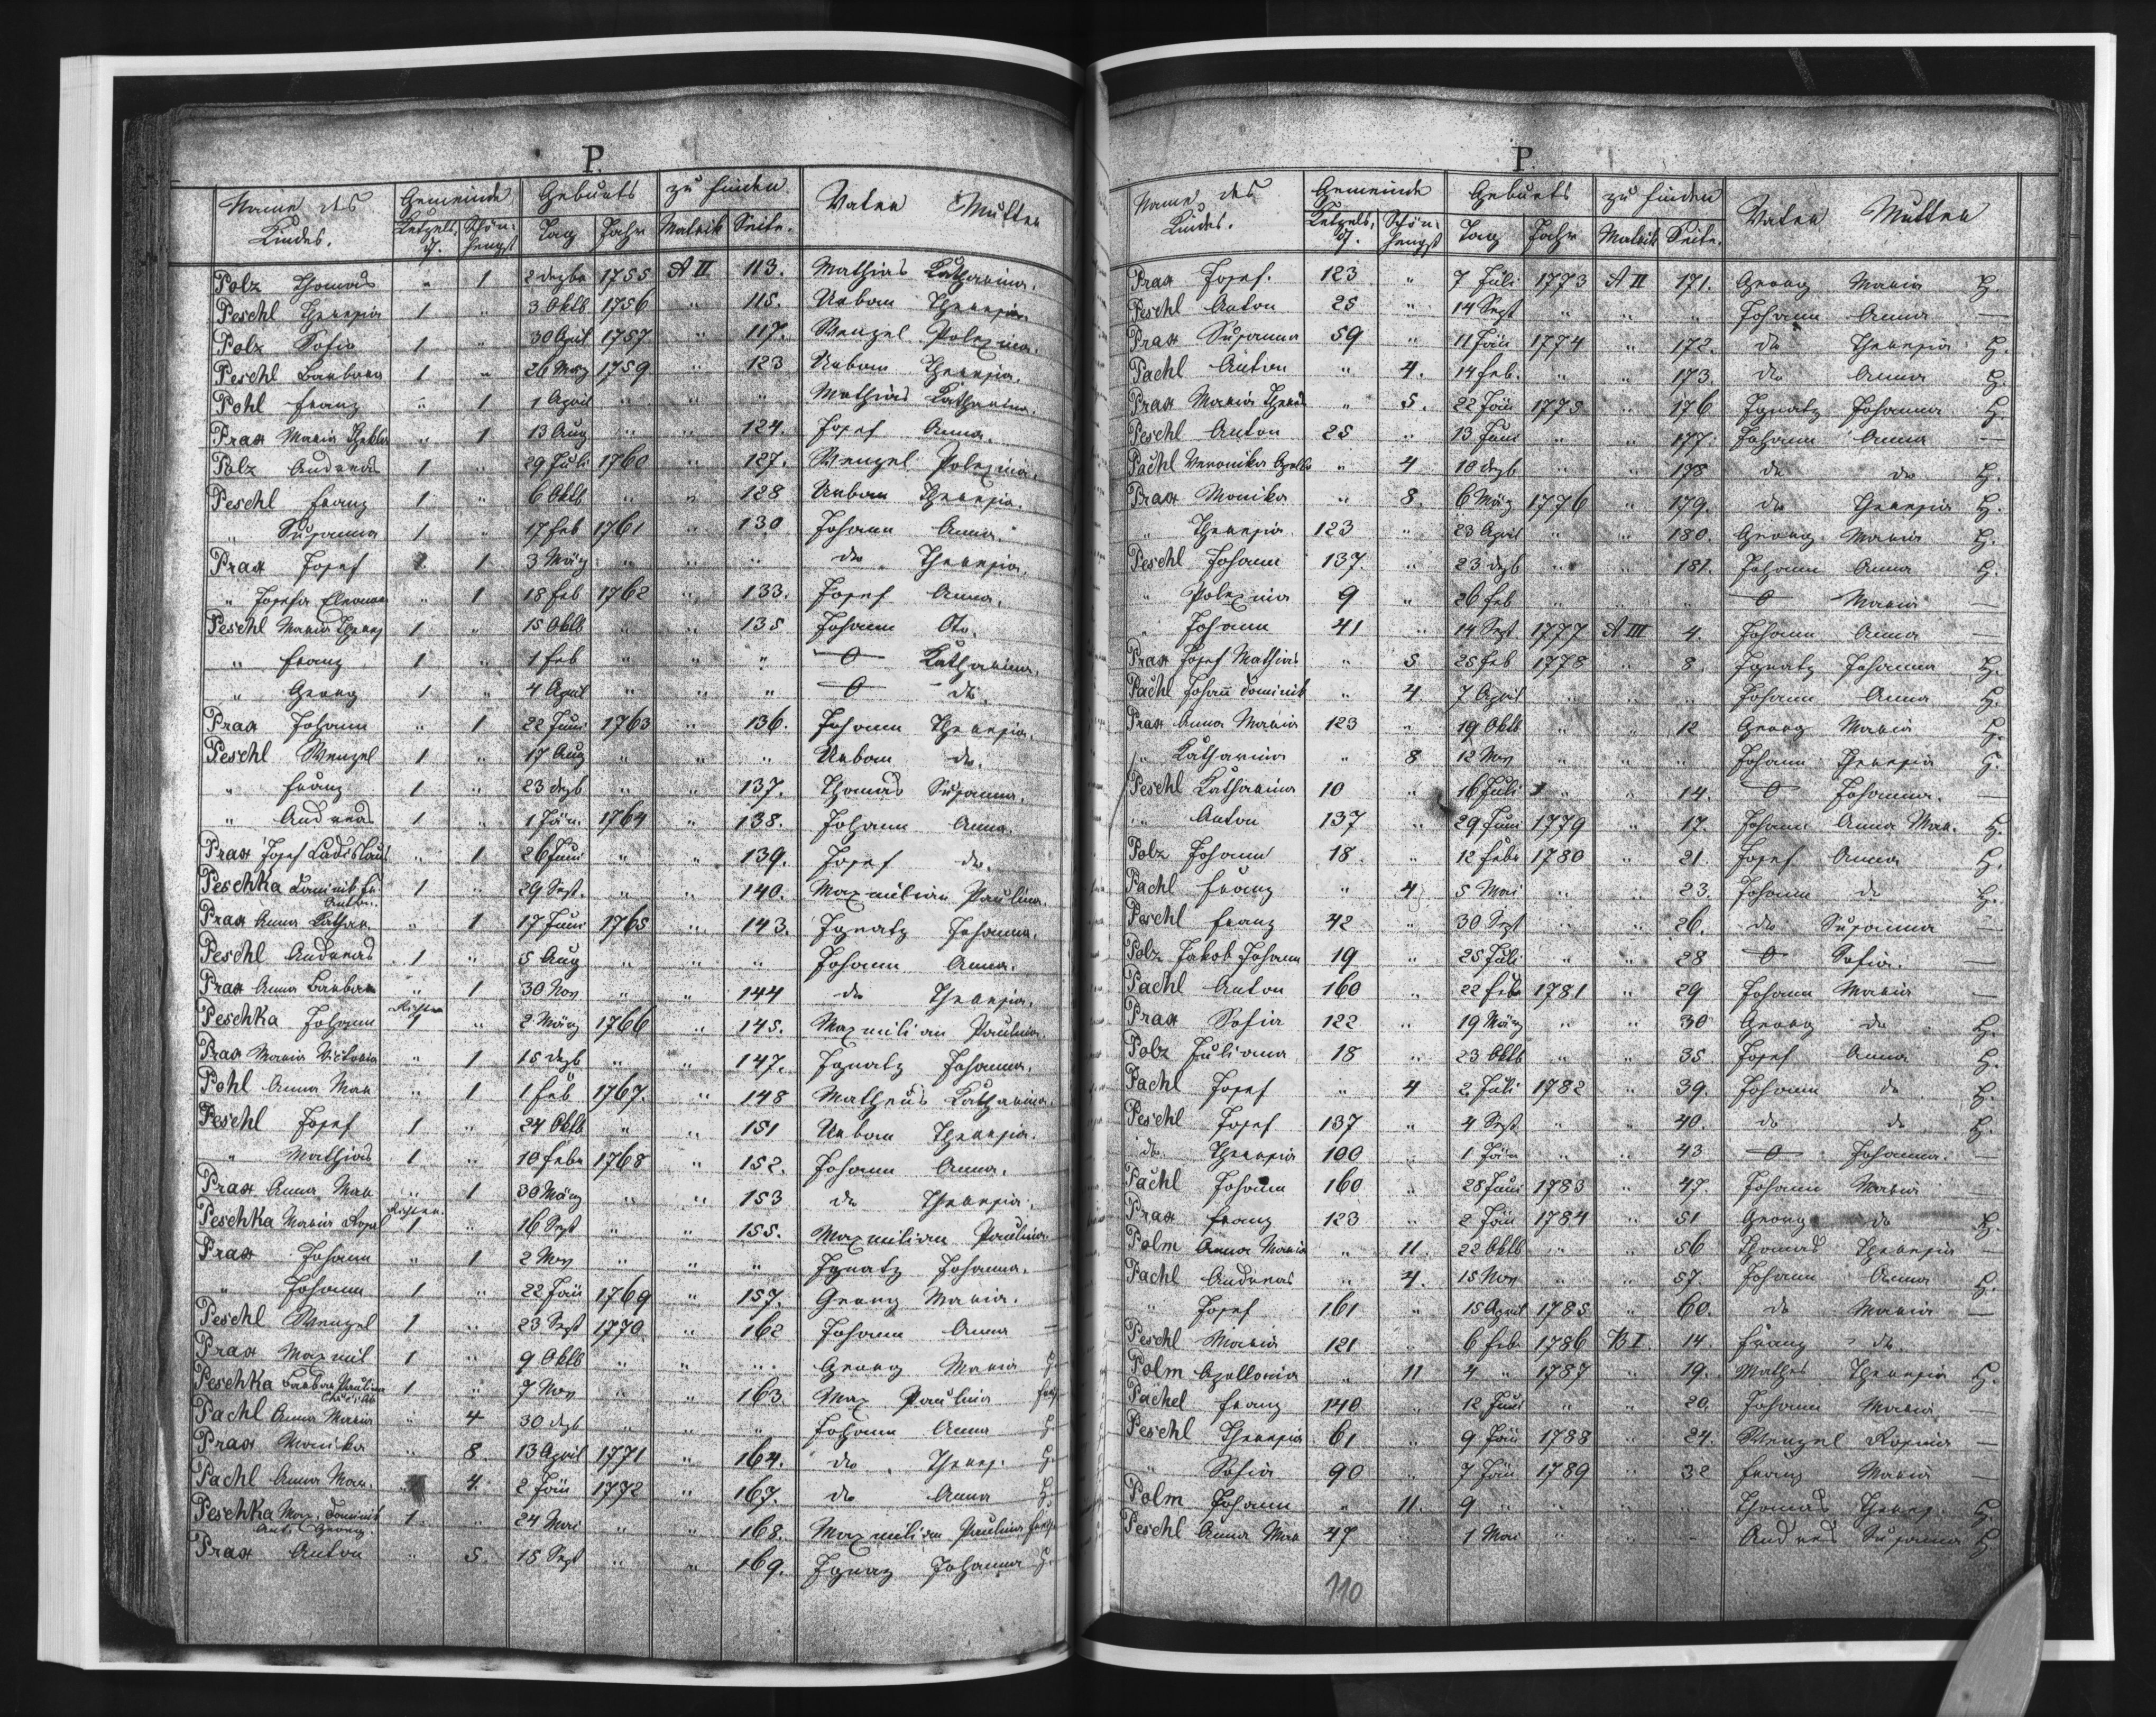 P.
Name des Kindes. Gemeinde Geburts zu finden Vater Mutter
Ketzelsd. Schönhengst Tag Jahr Matrik Seite.
Polz Thomas " 1 2 Dezbr 1755 A II 113. Mathias Katharina.
Peschl Theresia 1 " 3 Oktb 1756 " 115. Urban Theresia.
Polz Sofia 1 " 30 April 1757 " 117. Wenzel Polexina.
Peschl Barbara 1 " 26 März 1759 " 123 Urban Theresia.
Pohl Franz " 1 1 April " " " Mathias Katharina.
Prax Maria Thekla " 1 13 Aug " " 124. Josef Anna.
Polz Andreas 1 " 29 Juli 1760 " 127. Wenzel Polexina.
Peschl Franz 1 " 6 Oktb " " 128 Urban Theresia.
" Susanna 1 " 17 Feb 1761 " 130. Johann Anna.
Prax Josef 1 3 März " " " do Theresia.
" Josefa Eleonora " 1 18 Feb 1762 " 133. Josef Anna.
Peschl Maria Theres 1 " 15 Oktb " " 135 Johann
" Franz 1 " 1 Feb " " " O Katharina.
" Georg 1 " 4 April " " " O do.
Prax Johann " 1 22 Juni 1763 " 136. Johann Theresia.
Peschl Wenzel 1 " 17 Aug " " " Urban do.
" Franz 1 " 23 Dezb " " 137. Thomas Susanna.
" Andreas 1 " 1 Jän. 1764 " 138. Johann Anna.
Prax Josef Ladislaus " 1 26 Juni " " 139. Josef do.
Peschka Dominik Fr. Anton. 1 " 29 Sept. " " 140. Maxmilian Paulina.
Prax Anna Kathar. " 1 17 Juni 1765 " 143. Ignatz Johanna.
Peschl Andreas 1 " 5 Aug " " " Johann Anna.
Prax Anna Barbara " 1 30 Nov " " 144 do Theresia.
Peschka Johann Richter 1 " 2 März 1766 " 145. Maxmilian Paulina.
Prax Maria Victoria " 1 15 Dezb " " 147. Ignatz Johanna.
Pohl Anna Mar " 1 1 Feb 1767. " 148 Matheus Katharina.
Peschl Josef 1 " 24 Oktb " " 151 Urban Theresia.
" Mathias 1 " 10 Febr 1768 " 152. Johann Anna.
Prax Anna Mar " 1 30 März " " 153 do Theresia.
Peschka Maria Rosal Richter 1 " 16 Sept " " 155. Maxmilian Paulina.
Prax Johann " 1 2 Nov " " " Ignatz Johanna.
" Johann 1 " 22 Jän 1769 " 157. Georg Maria.
Peschl Wenzel 1 " 23 Sept 1770 " 162 Johann Anna —
Prax Maxmil 1 " 9 Oktb " " " Georg Maria H.
Peschka Barbar Paulina 1 " 7 Nov " " 163. Max Paulina
Pachl Anna Maria " 4 30 Dezb " " " Johann Anna H.
Prax Monika " 8. 13 April 1771 " 164. do Theres. H.
Pachl Anna Mar. 4. 2 Jän 1772 " 167. do Anna H.
Peschka Max. Dominik Ant. Georg. 1 " 24 Mai " " 168. Maxmilian Paulina
Prax Anton " 5 15 Sept " " 169. Ignaz Johanna H.
P.
Name des Kindes. Gemeinde Geburts zu finden Vater Mutter
Ketzelsd. Schönhengst Tag Jahr Matrik Seite.
Prax Josef. 123 " 7 Juli 1773 A II 171. Georg Maria H.
Peschl Anton 25 " 14 Sept " " " Johann Anna —
Prax Susanna 59 " 11 Jän 1774 " 172. do Theresia H.
Pachl Anton " 4. 14 Feb. " " 173. do Anna H.
Prax Maria Theres " 5. 22 Jän 1775 " 176 Ignatz Johanna H.
Peschl Anton 25 " 13 Juni " " 177. Johann Anna —
Pachl Veronika Apollo " 4 10 Dezb " " 178 do do H.
Prax Monika " 8. 6 März 1776 " 179. do Theresia H.
" Theresia 123 " 23 April " " 180. Georg Maria H.
Peschl Johann 137. " 23 Dezb " " 181. Johann Anna H.
" Polexina 9 " 26 Feb " " " O Maria —
" Johann 41 " 14 Sept 1777 A III 4. Johann Anna —
Prax Josef Mathias " 5 25 Feb 1778 " 8. Ignatz Johanna H.
Pachl Johann Dominik " 4. 7 April " " " Johann Anna H.
Prax Anna Maria 123 " 19 Oktb " " 12 Georg Maria H.
" Katharina " 8 12 Nov " " " Johann Theresia H.
Peschl Katharina 10 " 16 Juli " " 14. O Johanna. —
" Anton 137 " 29 Juni 1779 " 17. Johann Anna Mar. H.
Polz Johann 18. " 12 Febr 1780 " 21 Josef Anna H.
Pachl Franz " 4 5 Mai " " 23. Johann do H.
Peschl Franz 42 " 30 Sept " " 26. do Susanna —
Polz Jakob Johann 19 " 25 Juli " " 28 O Sofia. —
Pachl Anton 160 " 22 Febr 1781 " 29 Johann Maria —
Prax Sofia 122 " 19 März " " 30 Georg do H.
Polz Juliana 18 " 23 Oktb " " 35. Josef Anna H.
Pachl Josef " 4 2. Juli 1782 " 39. Johann do H.
Peschl Josef 137 " 4 Sept " " 40. do do H.
do. Theresia 100 " 1 Jän " " 43 O Johanna. —
Pachl Johann 160 " 28 Juni 1783 " 47. Johann Maria —
Prax Franz 123 " 2 Jän 1784 " 51 Georg do H.
Polm Anna Maria " 11. 22 Oktb " " 56 Thomas Theresia —
Pachl Andreas " 4. 15 Nov " " 57. Johann Anna H.
" Josef 161 " 15 April 1785 " 60. do Maria —
Peschl Maria 121 " 6 Febr 1786 B I. 14. Franz do. —
Polm Apollonia " 11 4 " 1787 " 19. Mathes Theresia H.
Pachel Franz 140 " 12 Juni " " 20. Johann Maria —
Peschl Theresia 61 " 9 Jän 1788 " 24. Wenzel Rosina —
" Sofia 90 " 7 Jän 1789 " 32 Franz Maria —
Polm Johann " 11. 9 " " " " Thomas Theres. H.
Peschl Anna Mar 47 " 1 Mai " " Andreas Susanna H
110